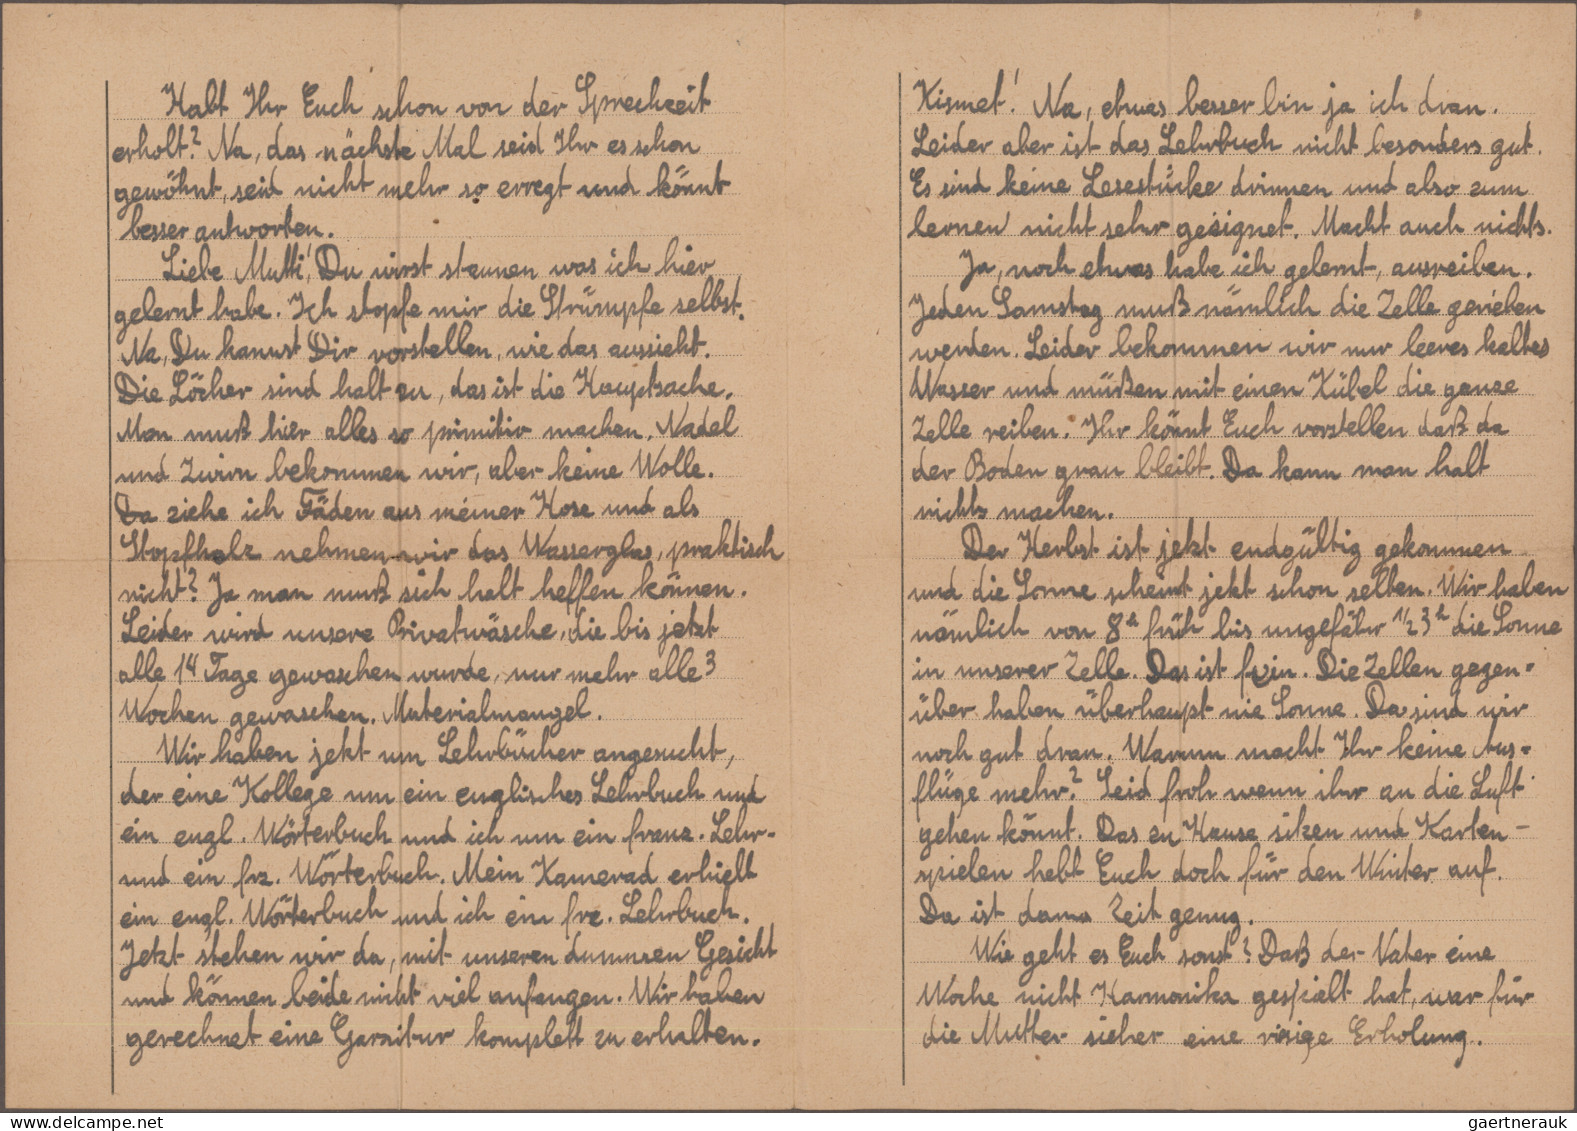 Habt Ihr Euch schon von der Sprechzeit
erholt? Na, das nächste Mal seid Ihr es schon
gewöhnt, seid nicht mehr so erregt und könnt
besser antworten.
Liebe Mutti! Du wirst staunen was ich hier
gelernt habe. Ich stopfe mir die Strümpfe selbst.
Na, Du kannst Dir vorstellen, wie das aussieht.
Die Löcher sind halt zu, das ist die Hauptsache.
Man muß hier alles so primitiv machen. Nadel
und Zwirn bekommen wir, aber keine Wolle.
Da ziehe ich Fäden aus meiner Hose und als
Stopfholz nehmen wir das Wasserglas, praktisch
nicht? Ja man muß sich halt helfen können.
Leider wird unsere Privatwäsche, die bis jetzt
alle 14 Tage gewaschen wurde, nur mehr alle 3
Wochen gewaschen. Materialmangel.
Wir haben jetzt um Lehrbücher angesucht,
der eine Kollege um ein englisches Lehrbuch und
ein engl. Wörterbuch und ich um ein franz. Lehr-
und ein frz. Wörterbuch. Mein Kamerad erhielt
ein engl. Wörterbuch und ich ein frz. Lehrbuch.
Jetzt stehen wir da, mit unseren dummen Gesicht
und können beide nicht viel anfangen. Wir haben
gerechnet eine Garnitur komplett zu erhalten.
Kismet! Na, etwas besser bin ja ich dran.
Leider aber ist das Lehrbuch nicht besonders gut.
Es sind keine Lesestücke drinnen und also zum
lernen nicht sehr geeignet. Macht auch nichts.
Ja, noch etwas habe ich gelernt, ausreiben.
Jeden Samstag muß nämlich die Zelle gerieben
werden. Leider bekommen wir nur leeres kaltes
Wasser und müßen mit einen Kübel die ganze
Zelle reiben. Ihr könnt Euch vorstellen daß da
der Boden grau bleibt. Da kann man halt
nichts machen.
Der Herbst ist jetzt endgültig gekommen
und die Sonne scheint jetzt schon selten. Wir haben
nämlich von 8h früh bis ungefähr 1/2 3h die Sonne
in unserer Zelle. Das ist fein. Die Zellen gegen=
über haben überhaupt nie Sonne. Da sind wir
noch gut dran. Warum macht Ihr keine Aus=
flüge mehr? Seid froh wenn ihr an die Luft
gehen könnt. Das zu Hause sitzen und Karten-
spielen hebt Euch doch für den Winter auf.
Da ist dann Zeit genug.
Wie geht es Euch sonst? Daß der Vater eine
Woche nicht Harmonika gespielt hat, war für
die Mutter sicher eine riesige Erholung.
gaertnerauk